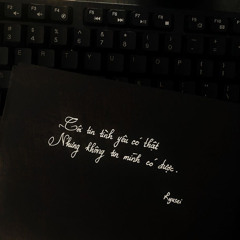 Có tin tình yêu có thật
Nhưng không tin mình có được.